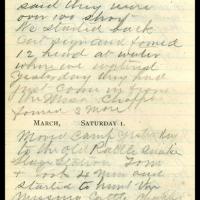 said they were
over 100 short
We started back
Cut sign and found
12 head at water
when we
yesterday they had
just come in from
the
found 3 more
MARCH, SATURDAY 1.
Moved Camp yesterday
to the old Rattle Snake
Stage Station Tom
+ took 4 men and
started to hunt the
missing Cattle